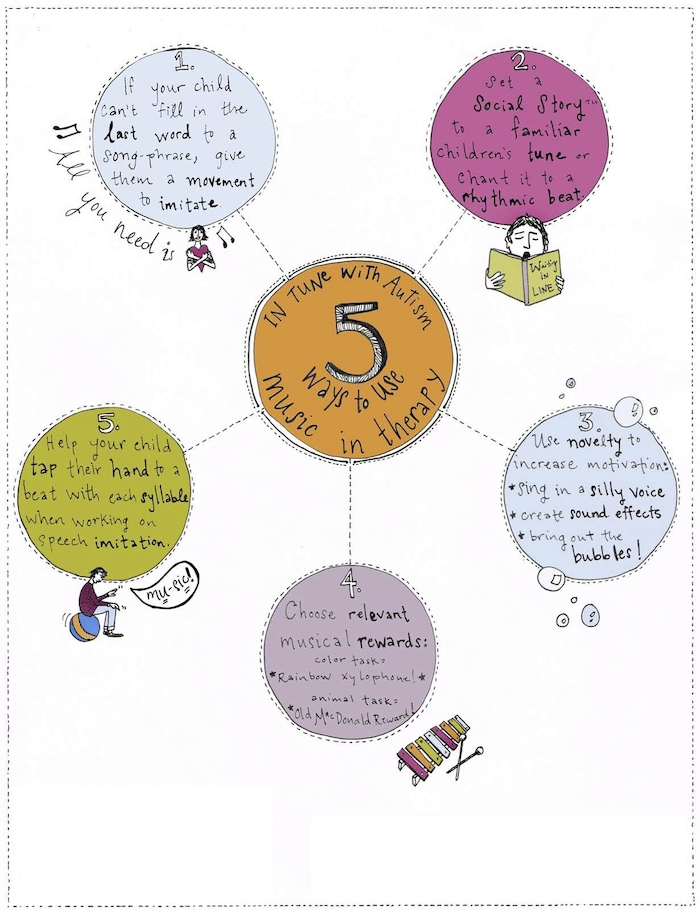 IN TUNE WITH AUTISM
5
ways to use
music in therapy
1.
If your child
can't fill in the
last word to a
song-phrase, give
them a movement
to imitate
All you need is
2.
Set a
Social Story™
to a familiar
children's tune or
chant it to a
rhythmic beat.
Waiting
in
LINE
3.
Use novelty to
increase motivation:
*sing in a silly voice
*create sound effects
*bring out the
bubbles!
4.
Choose relevant
musical rewards:
color task=
*Rainbow xylophone!*
animal task=
*Old MacDonald Reward!
5.
Help your child
tap their hand to a
beat with each syllable
when working on
speech imitation.
mu-sic!